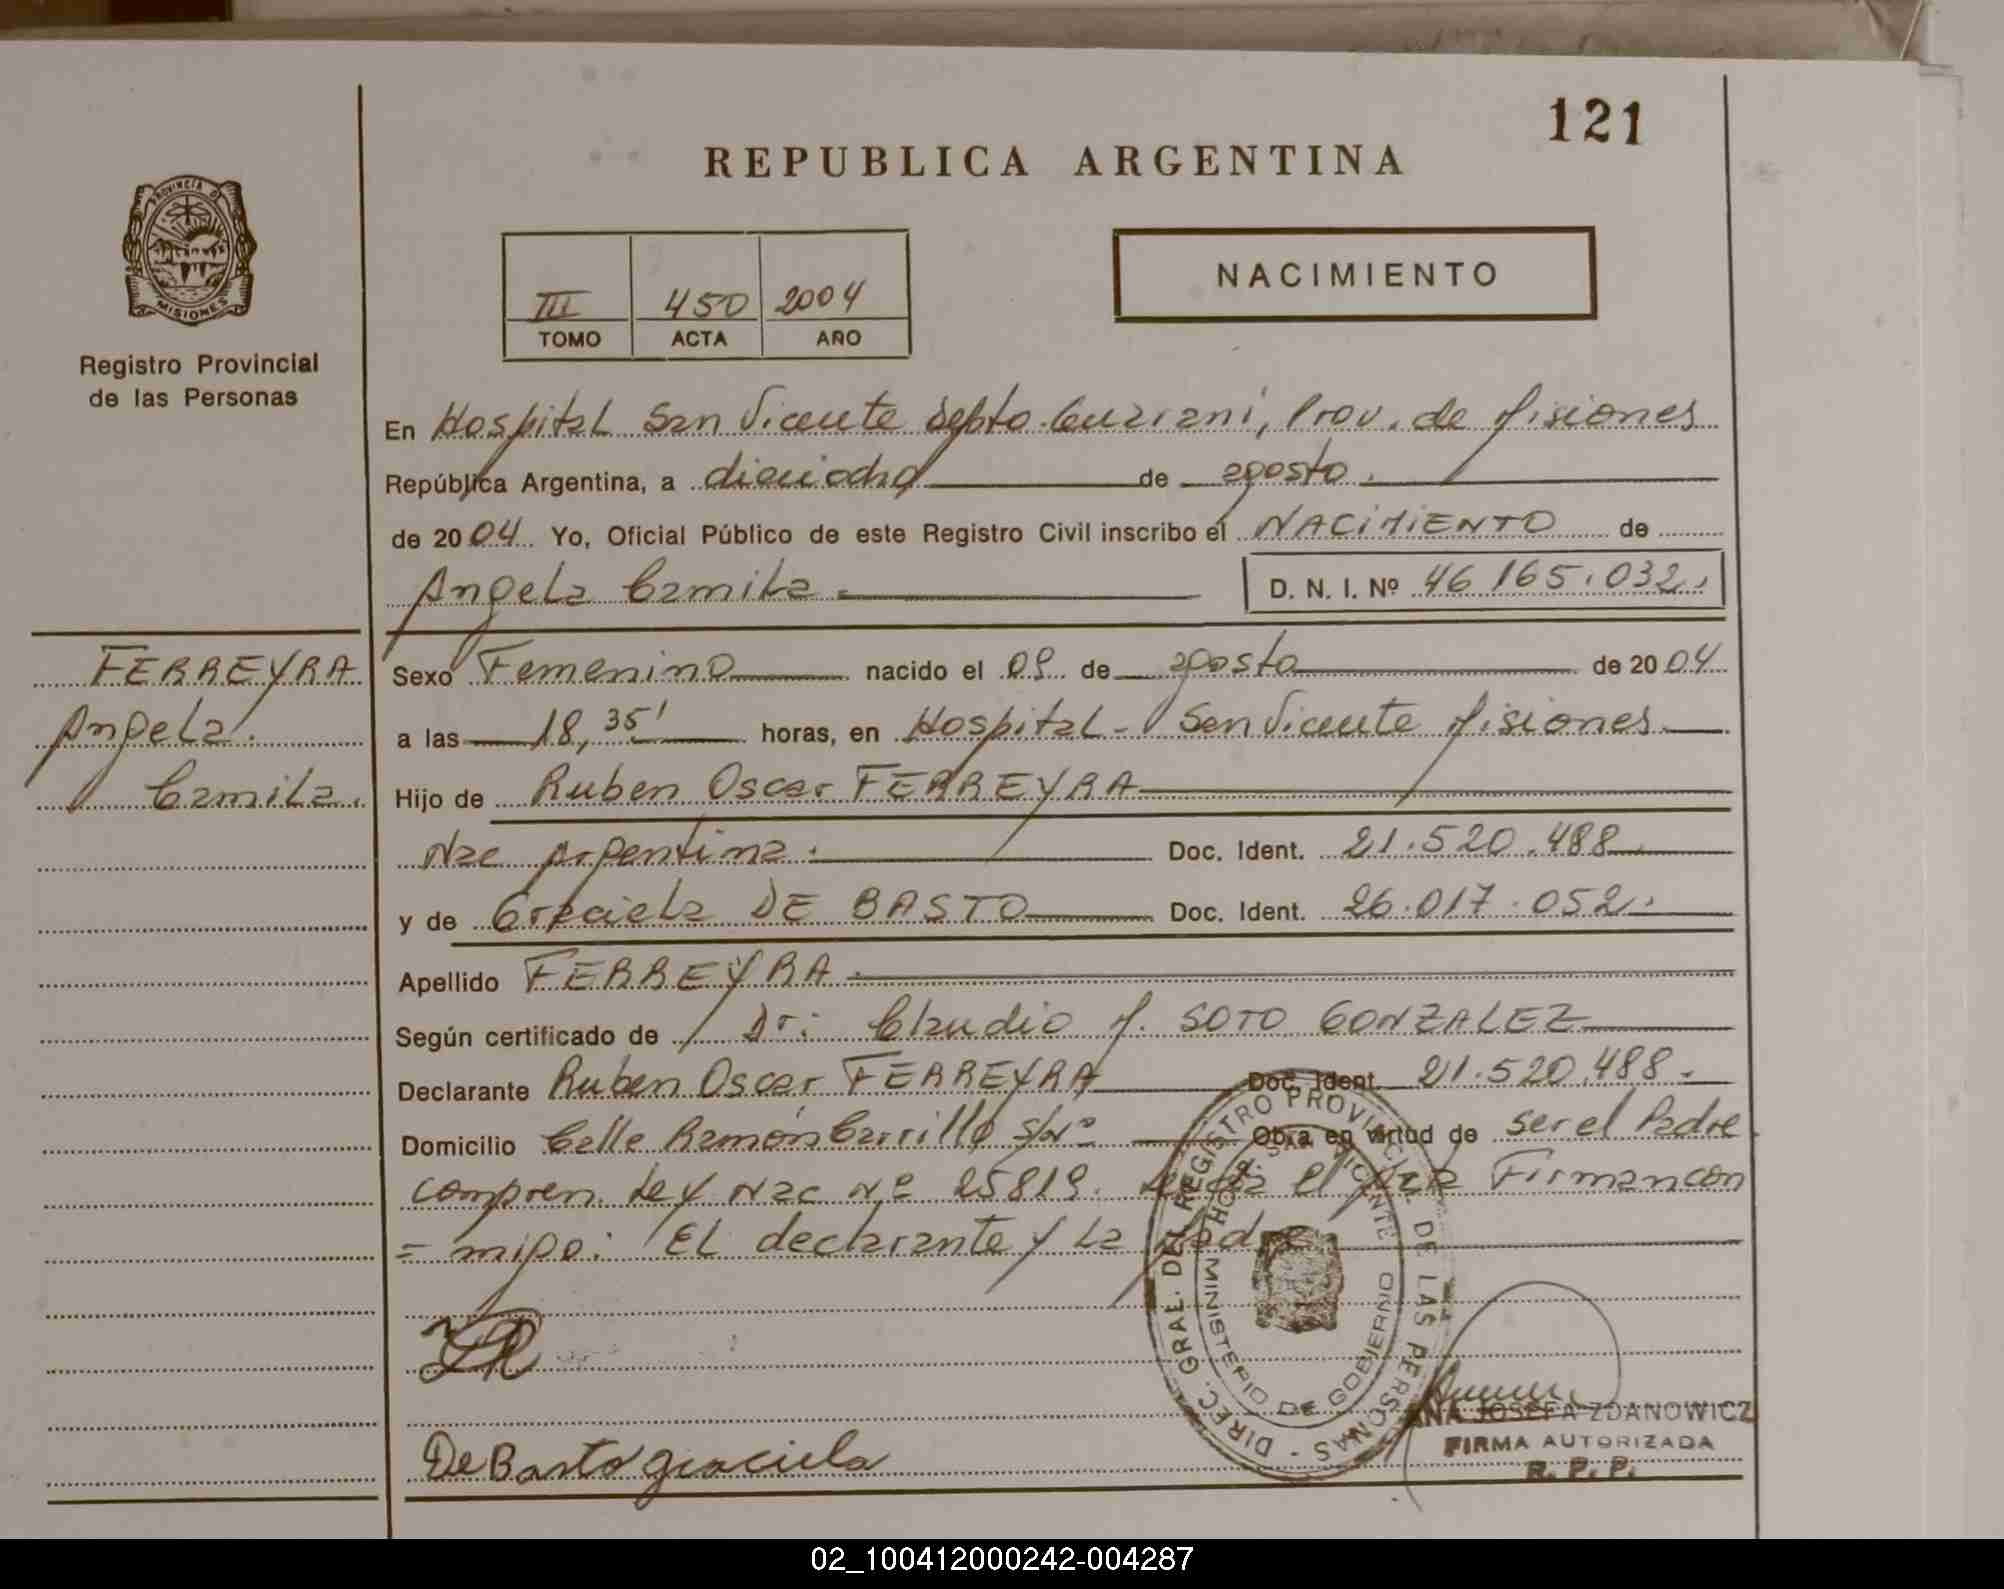 121
REPUBLICA ARGENTINA
PROVINCIA DE
MISIONES
Registro Provincial
de las Personas
III 450 2004
TOMO ACTA AÑO
NACIMIENTO
En Hospital San Vicente depto. Guarani, Prov. de Misiones
República Argentina, a dieciocho de agosto.
de 2004 Yo, Oficial Público de este Registro Civil inscribo el NACIMIENTO de
Angela Camila
D. N. I. Nº 46.165.032.
FERREYRA
Angela.
Camila.
Sexo Femenino nacido el 09 de agosto de 2004
a las 18,35' horas, en Hospital - San Vicente Misiones
Hijo de Ruben Oscar FERREYRA
Nac Argentina. Doc. Ident. 21.520.488
y de Graciela DE BASTO Doc. Ident. 26.017.052.
Apellido FERREYRA
Según certificado de Dr: Claudio M. SOTO GONZALEZ
Declarante Ruben Oscar FERREYRA Doc. Ident. 21.520.488.
Domicilio Calle Ramón Carrillo S/Nº Obra en virtud de ser el Padre
compren. Ley Nac Nº 25819. Leida el Acta Firman con
= migo: El declarante y La Madre
De Basto graciela
DIREC. GRAL. DEL REGISTRO PROVINCIAL DE LAS PERSONAS
HOSP. SAN VICENTE
MINISTERIO DE GOBIERNO
ANA JOSEFA ZDANOWICZ
FIRMA AUTORIZADA
R. P. P.
02_100412000242-004287